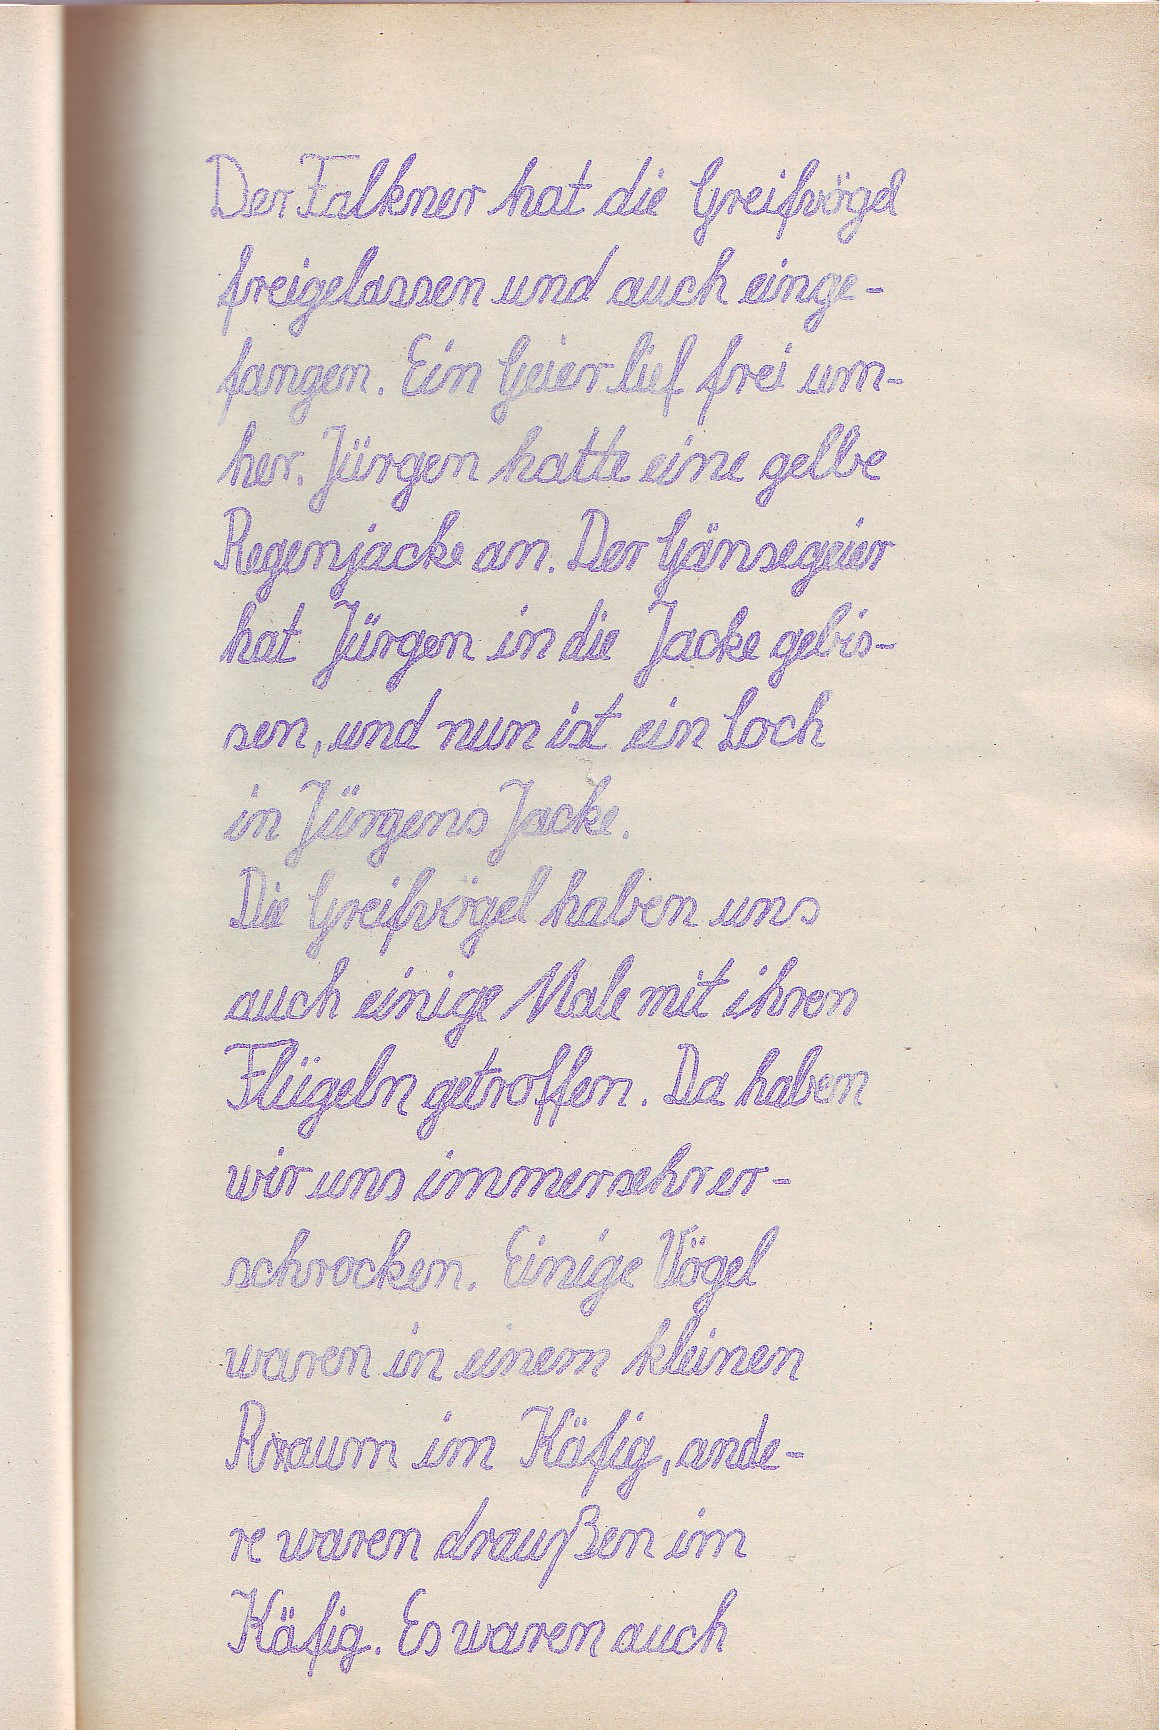 Der Falkner hat die Greifvögel
freigelassen und auch einge-
fangen. Ein Geier lief frei um-
her. Jürgen hatte eine gelbe
Regenjacke an. Der Gänsegeier
hat Jürgen in die Jacke gebis-
sen, und nun ist ein Loch
in Jürgens Jacke.
Die Greifvögel haben uns
auch einige Male mit ihren
Flügeln getroffen. Da haben
wir uns immer sehr er-
schrocken. Einige Vögel
waren in einem kleinen
Raum im Käfig, ande-
re waren draußen im
Käfig. Es waren auch